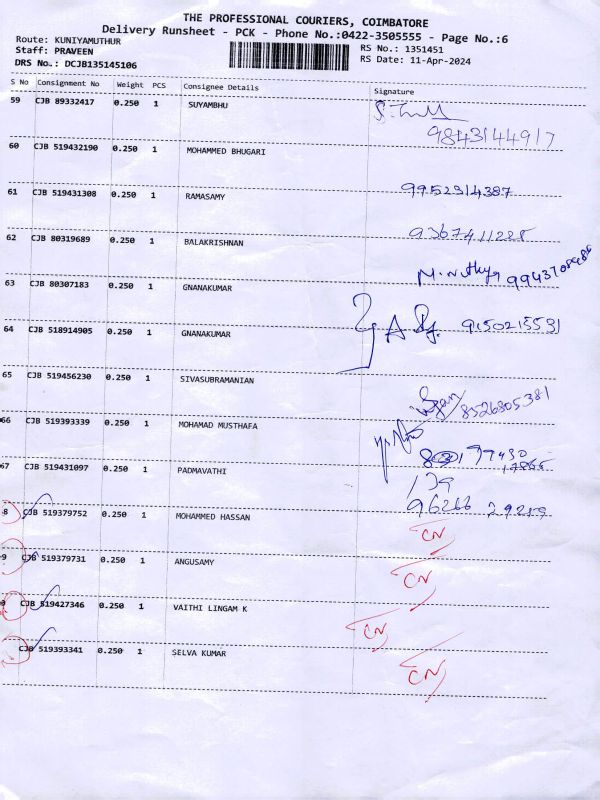 THE PROFESSIONAL COURIERS, COIMBATORE
Delivery Runsheet - PCK - Phone No.:0422-3505555 - Page No.:6
Route: KUNIYAMUTHUR
RS No.: 1351451
Staff: PRAVEEN
RS Date: 11-Apr-2024
DRS No.: DCJB135145106
S No Consignment No Weight PCS Consignee Details Signature
59 CJB 89332417 0.250 1 SUYAMBHU
9843144917
60 CJB 519432190 0.250 1 MOHAMMED BHUGARI
61 CJB 519431308 0.250 1 RAMASAMY 9952314387
62 CJB 80319689 0.250 1 BALAKRISHNAN 9367411228
63 CJB 80307183 0.250 1 GNANAKUMAR
64 CJB 518914905 0.250 1 GNANAKUMAR 9150215531
65 CJB 519456230 0.250 1 SIVASUBRAMANIAN
8526805381
66 CJB 519393339 0.250 1 MOHAMAD MUSTHAFA
67 CJB 519431097 0.250 1 PADMAVATHI
8 CJB 519379752 0.250 1 MOHAMMED HASSAN
CN
9 CJB 519379731 0.250 1 ANGUSAMY CN
0 CJB 519427346 0.250 1 VAITHI LINGAM K
CN
CJB 519393341 0.250 1 SELVA KUMAR
CN